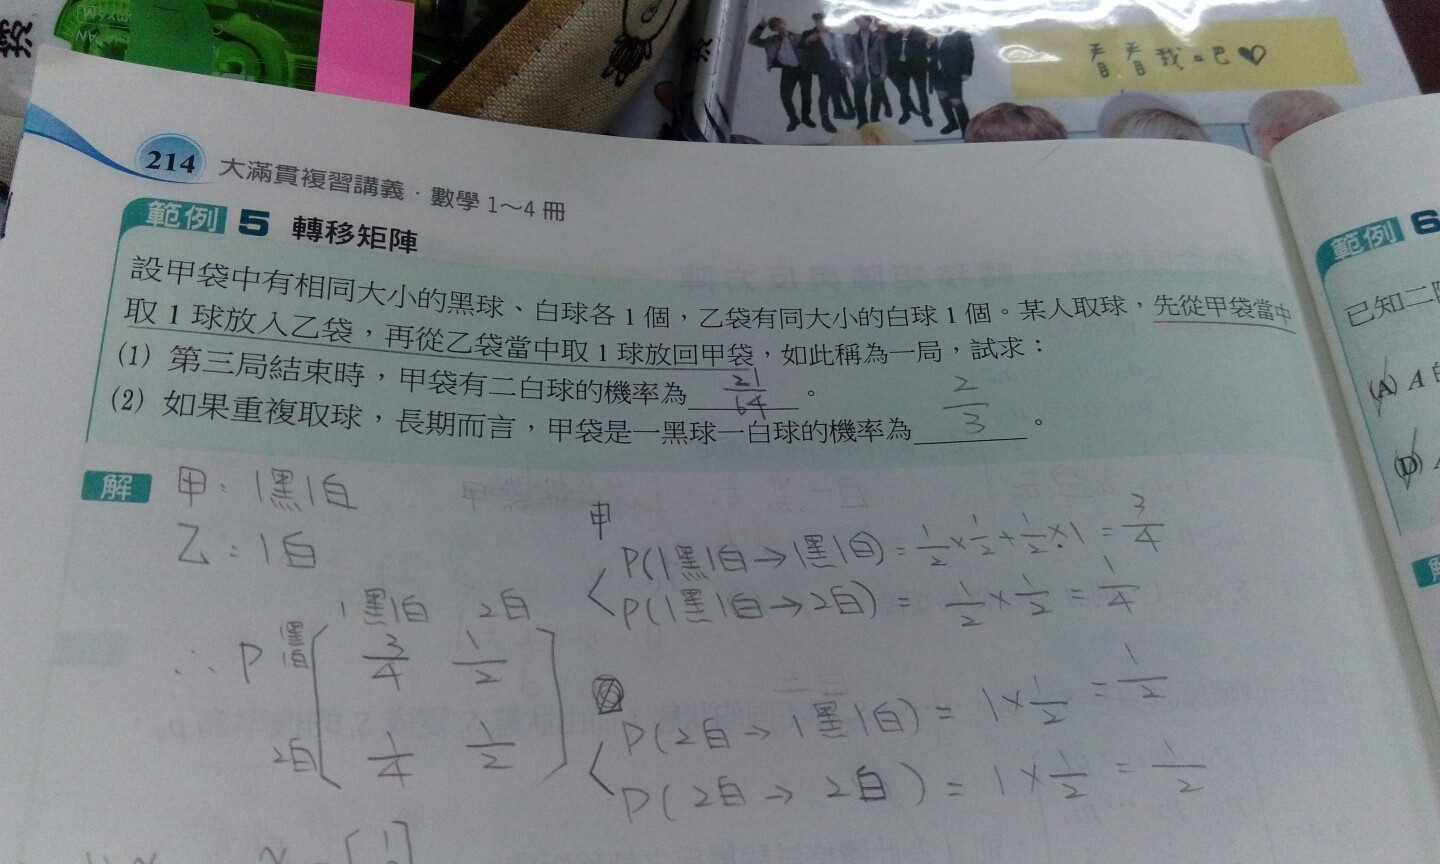 看看我吧♡
214 大滿貫複習講義．數學 1～4 冊
範例 5 轉移矩陣
設甲袋中有相同大小的黑球、白球各 1 個，乙袋有同大小的白球 1 個。某人取球，先從甲袋當中
取 1 球放入乙袋，再從乙袋當中取 1 球放回甲袋，如此稱為一局，試求：
(1) 第三局結束時，甲袋有二白球的機率為 21/64 。
(2) 如果重複取球，長期而言，甲袋是一黑球一白球的機率為 2/3 。
解 甲：1黑1白
乙：1白
甲
P(1黑1白→1黑1白) = 1/2 × 1/2 + 1/2 × 1 = 3/4
P(1黑1白→2白) = 1/2 × 1/2 = 1/4
1黑1白 2白
∴ P 1黑1白 [ 3/4 1/2
2白 1/4 1/2 ]
P(2白→1黑1白) = 1 × 1/2 = 1/2
P(2白→2白) = 1 × 1/2 = 1/2
範例 6
(A) A
(D)